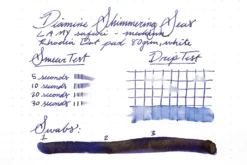 Diamine Shimmering Seas
LAMY safari - medium
Rhodia Dot pad 80gsm, white
Smear Test Drip Test
5 seconds
10 seconds
20 seconds
30 seconds
Swabs:
1 2 3